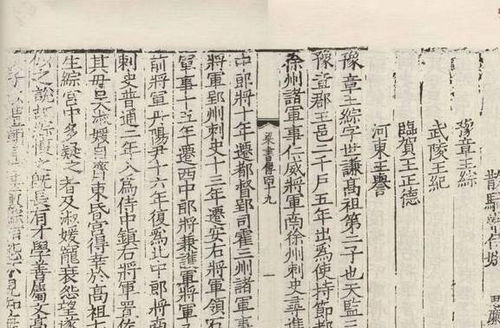 散騎
豫章王綜
武陵王紀
臨賀王正德
河東王譽
豫章王綜字世謙高祖第二子也天監三
豫章郡王邑二千戶五年出爲使持節都
徐州諸軍事仁威將軍南徐州刺史尋進
梁書傳四十九
一
中郎將十年遷都督郢司霍三州諸軍事
將軍郢州刺史十三年遷安右將軍領石
軍事十五年遷西中郎將兼護軍將軍
前將軍丹陽尹十六年復爲北中郎將南
刺史普通二年入爲侍中鎮右將軍置佐
其母吳淑媛自齊東昏宮得幸於高祖七
生綜宮中多疑之者及淑媛寵衰怨望遂
似之說故綜懷之既長有才學善屬文高